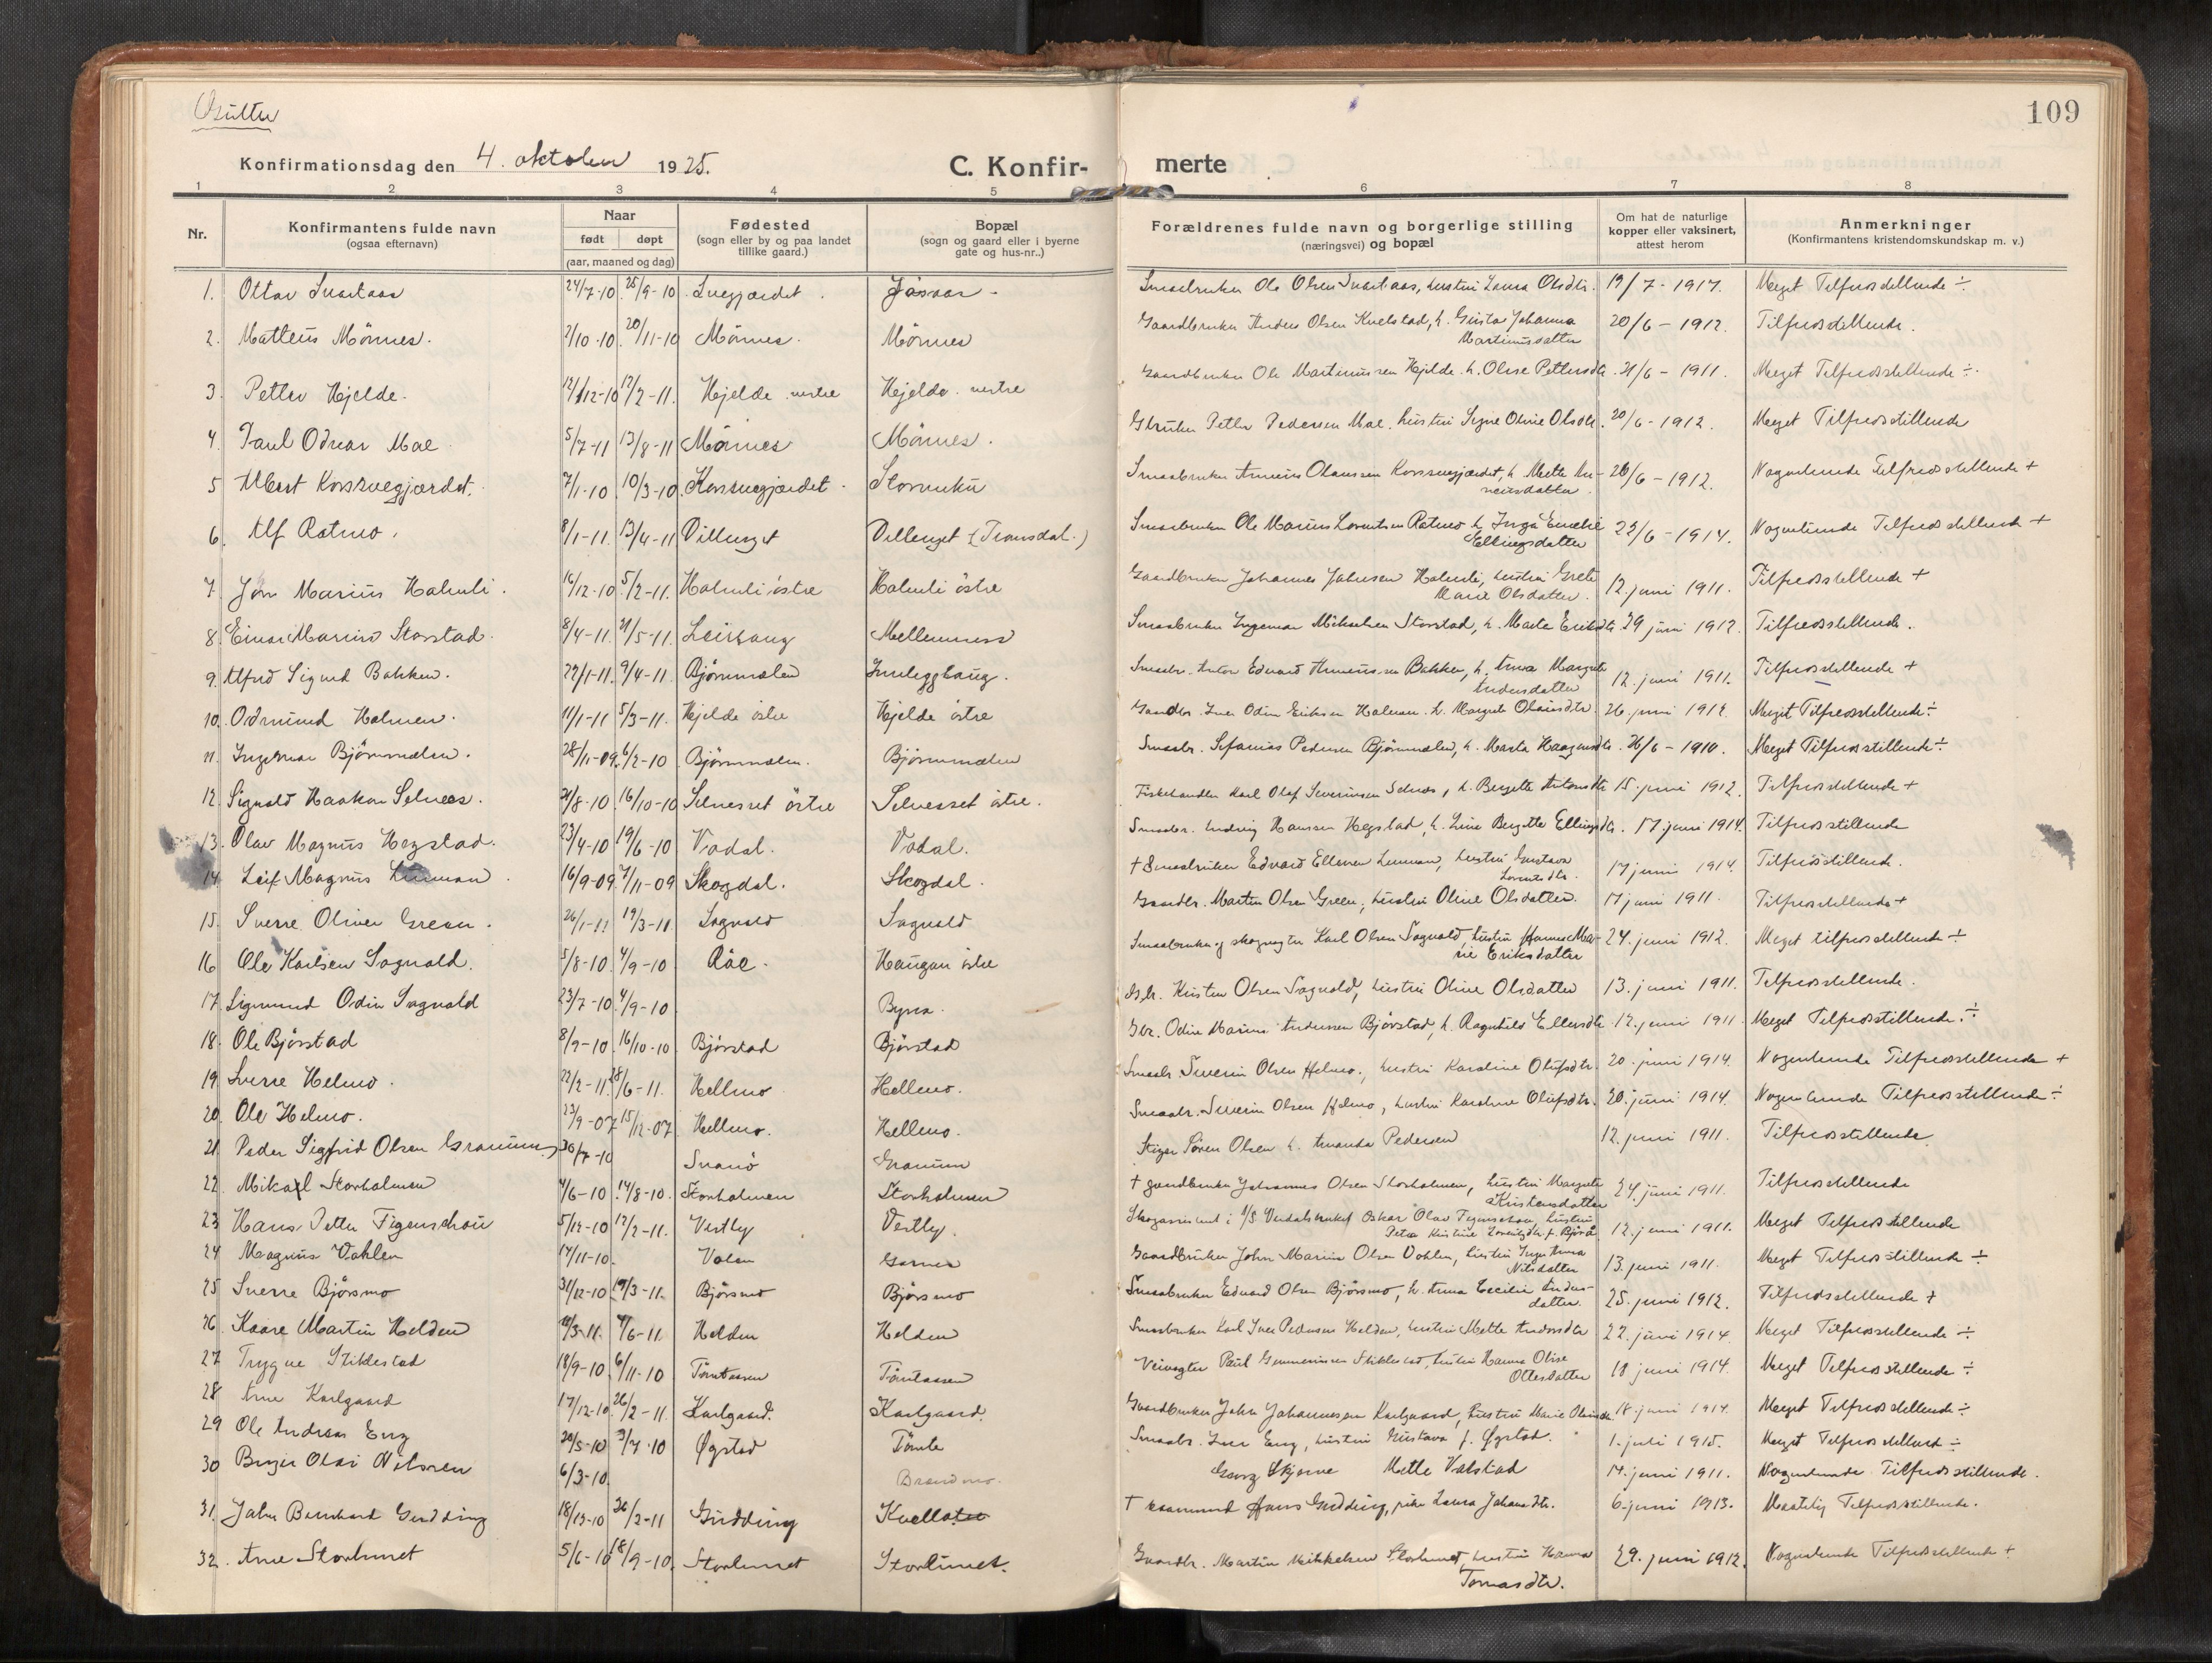 109
Konfirmationsdag den 4. oktober 1925.
C. Konfirmerte
1 2 3 4 5 6 7 8
Nr.
Konfirmantens fulde navn (ogsaa efternavn)
Naar født døpt (aar, maaned og dag)
Fødested (sogn eller by og paa landet tillike gaard.)
Bopæl (sogn og gaard eller i byerne gate og hus-nr..)
Forældrenes fulde navn og borgerlige stilling (næringsvei) og bopæl
Om hat de naturlige kopper eller vaksinert, attest herom
Anmerkninger (Konfirmantens kristendomskundskap m. v.)
1. Ottar 24/7-10. 25/9-10 19/7-1917. Meget Tilfredsstillende ÷
2. Matteus Mönnes. 2/10-10. 20/11-10 Mönnes. Mönnes Gaardbruker Anders Olsen Kvelstad, h. Johanna Martinusdatter 20/6-1912. Tilfredsstillende.
3. Petter Hjelde. 12/12-10 12/2-11. Hjelde vestre Hjelde vestre Gaardbruker Ole Martinussen Hjelde h. Oline Pettersdtr. 21/6-1911. Meget Tilfredsstillende ÷
4. Paul Odvar Moe 5/7-11 13/8-11 Mönnes Mönnes. Gbruker Petter Pedersen Moe, hustru Signe Oline Olsdtr. 20/6-1912. Meget Tilfredsstillende
5 Albert Korsvegjærdet. 7/1-10 10/3-10 Korsvegjærdet Smaabruker Olausen Korsvegjærdet, h. Mette 20/6-1912. Nogenlunde Tilfredsstillende +
6. Alf Ratmo. 8/1-11. 13/4-11 Villenget Villenget (Tromsdal.) Smaabruker Ole Marius Lorentsen Ratmo h. Inga Emelie Ellingsdatter 22/6-1914. Nogenlunde Tilfredsstillende +
7. Jon Marius Halmli. 16/12-10. 5/2-11. Halmli östre Halmli östre Gaardbruker Johannes Johnsen Halmli, hustru Grete Marie Olsdatter. 12. juni 1911. Tilfredsstillende +
8. Einar Marius Storstad. 8/4-11. 21/5-11. Mellemness Smaabruker Ingemar Mikalsen Storstad, h. Marta Eriksdtr. 29 juni 1912. Tilfredsstillende.
9. Alfred Sigurd Bakken. 22/1-11. 9/4-11. Bjørnmælen Smaabr. Anton Edvard Bakken, h. Anna Margrete Andersdatter 12. juni 1911. Tilfredsstillende +
10. Odmund Holmen. 11/1-11 5/3-11. Hjelde östre Hjelde östre Gaardbr. Iver Odin Eriksen Holmen. h. Margrete Olausdtr. 26. juni 1912. Meget Tilfredsstillende ÷
11. Ingemar Bjørnmælen. 28/11-09. 6/2-10 Bjørnmælen. Bjørnmælen Smaabr. Sefanias Pedersen Bjørnmælen, h. Marta Haagensdtr. 26/6-1910. Meget Tilfredsstillende ÷
12. Sigvald Haakon Selnes. 21/8-10. 16/10-10 Selnesset östre Selnesset östre. Fiskehandler Karl Olaf Severinsen Selnes, h. Bergitte Antonsdtr 15. juni 1912. Tilfredsstillende +
13. Olav Magnus Hegstad. 23/4-10 19/6-10 Vodal. Vodal. Smaabr. Ludvig Hansen Hegstad, h. Line Bergitte Ellingsdtr. 17. juni 1914. Tilfredsstillende
14 Leif Magnus 16/9-09. 7/11-09 Skogdal. Skogdal. + Smaabruker Edvard Ellevsen, hustru Gustava Lorentsdtr. 17 juni 1914. Tilfredsstillende.
15. Sverre Oliver Green. 26/1-11 19/3-11 Sagvold Sagvold Gaardbr. Martin Olsen Green, hustru Oline Olsdatter. 17 juni 1911. Tilfredsstillende +
16 Ole Karlsen Sagvold. 5/8-10. 4/9-10 Raae. Haugan östre Smaabruker og skogvogter Karl Olsen Sagvold, hustru Hanna Marie Eriksdatter 24. juni 1912. Meget tilfredsstillende ÷
17. Sigmund Odin Sagvold 23/7-10 4/9-10 Byna. Kristen Olsen Sagvold, hustru Oline Olsdatter 13. juni 1911. Tilfredsstillende.
18. Ole Bjørstad 8/9-10. 16/10-10 Bjørstad Bjørstad Gbr. Odin Marius Andersen Bjørstad, h. Ragnhild Ellevsdtr. 12. juni 1911. Meget Tilfredsstillende. ÷
19 Sverre Helmo. 22/2-11. 28/6-11. Hellmo Hellmo. Smaabr. Severin Olsen Helmo., hustru Karoline Olufsdtr. 20. juni 1914. Nogenlunde Tilfredsstillende +
20. Ole Helmo. 23/9-07 15/12-07 Hellmo. Hellmo. Smaabr. Severin Olsen Helmo, hustru Karoline Olufsdtr. 20. juni 1914. Nogenlunde Tilfredsstillende ÷
21. Peder Sigfrid Olsen Granum 30/7-10 Svanö Granum Stiger Søren Olsen h. Amanda Pedersen 12. juni 1911. Tilfredsstillende.
22. Mikael Storholmen 4/6-10. 14/8-10. Storholmen Storholmen + gaardbruker Johannes Olsen Storholmen, hustru Margrete Kristensdatter 24. juni 1911. Tilfredsstillende
23 Hans Petter Figenschou 5/12-10 12/2-11. Vestby Vestby. Skogassistent i A/S Verdalsbruket Oskar Olav Figenschou, hustru Petra Kristine Lorentsdtr f. 12. juni 1911. Meget Tilfredsstillende
24 Magnus Vohlen 14/11-10. Volen Garnes Gaardbruker John Marius Olsen Vohlen, hustru Inga Anna Nilsdatter 13. juni 1911. Meget Tilfredsstillende ÷
25 Sverre Bjørsmo 31/12-10. 19/3-11. Bjørsmo Bjørsmo Smaabruker Edvard Olsen Bjørsmo, h. Anna Cecilie Andersdatter. 25. juni 1912. Tilfredsstillende +
26. Kaare Martin Helden 3-11. 6-11. Helden Helden Smaabruker Karl Iver Pedersen Helden, hustru Mette Andersdtr 22. juni 1914. Meget Tilfredsstillende ÷
27 Trygve Stiklestad 18/9-10. 6/11-10 Tömtaasen Tömtaasen Veivogter Paul Stiklestad, hustru Hanna Oline Ottesdatter 18 juni 1914. Meget Tilfredsstillende ÷
28 Arne Karlgaard 17/12-10. 26/2-11. Karlgaard. Karlgaard. Gaardbruker John Johannessen Karlgaard, hustru Marie 18. juni 1914. Meget Tilfredsstillende ÷
29 Ole Andreas Eng 20/5-10 3/7-10 Øgstad Tömte Smaabr. Iver Eng, hustru Gustava f. Øgstad. 1. juli 1915. Meget Tilfredsstillende ÷
30 Birger Olai Nilssen 6/3-10. Brandmo. Georg Skjerve Mette Valstad 14. juni 1911. Nogenlunde Tilfredsstillende.
31. John Bernhard Gudding 18/12-10 26/2-11 Gudding + Hans Gudding, pike Laura Johansdtr. 6. juni 1913. Maatelig Tilfredsstillende.
32. Arne Storlunet 5/6-10 18/9-10. Storlunet Storlunet. Gaardbr. Martin Mikkelsen Storlunet, hustru Hanna Tomasdtr. 29. juni 1912. Nogenlunde Tilfredsstillende +